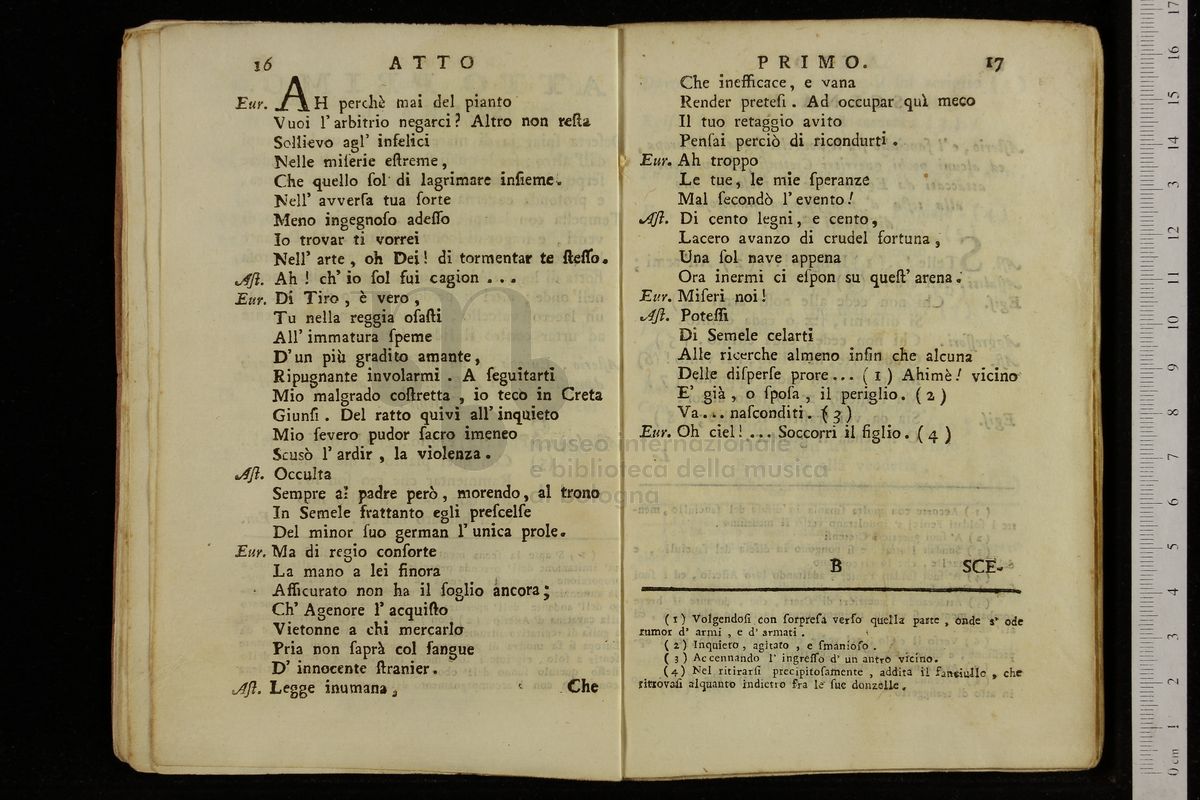 16 ATTO
Eur. AH perchè mai del pianto
Vuoi l'arbitrio negarci? Altro non reſta
Sollievo agl' infelici
Nelle miſerie eſtreme,
Che quello ſol di lagrimare inſieme.
Nell' avverſa tua ſorte
Meno ingegnoſo adeſſo
Io trovar ti vorrei
Nell' arte, oh Dei! di tormentar te ſteſſo.
Aſt. Ah! ch' io ſol fui cagion . . .
Eur. Di Tiro, è vero,
Tu nella reggia oſaſti
All' immatura ſpeme
D' un più gradito amante,
Ripugnante involarmi. A ſeguitarti
Mio malgrado coſtretta, io teco in Creta
Giunſi. Del ratto quivi all' inquieto
Mio ſevero pudor ſacro imeneo
Scusò l' ardir, la violenza.
Aſt. Occulta
Sempre al padre però, morendo, al trono
In Semele frattanto egli preſcelſe
Del minor ſuo german l' unica prole.
Eur. Ma di regio conſorte
La mano a lei finora
Aſſicurato non ha il ſoglio ancora;
Ch' Agenore l' acquiſto
Vietonne a chi mercarlo
Pria non ſaprà col ſangue
D' innocente ſtranier.
Aſt. Legge inumana,
Che
PRIMO. 17
Che inefficace, e vana
Render preteſi. Ad occupar quì meco
Il tuo retaggio avito
Penſai perciò di ricondurti.
Eur. Ah troppo
Le tue, le mie ſperanze
Mal ſecondò l' evento!
Aſt. Di cento legni, e cento,
Lacero avanzo di crudel fortuna,
Una ſol nave appena
Ora inermi ci eſpon su queſt' arena.
Eur. Miſeri noi!
Aſt. Poteſſi
Di Semele celarti
Alle ricerche almeno inſin che alcuna
Delle diſperſe prore... (1) Ahimè! vicino
E' già, o ſpoſa, il periglio. (2)
Va... naſconditi. (3)
Eur. Oh ciel! ... Soccorri il figlio. (4)
B SCE-
(1) Volgendoſi con ſorpreſa verſo quella parte, onde s' ode
rumor d' armi, e d' armati.
(2) Inquieto, agitato, e ſmanioſo.
(3) Accennando l' ingreſſo d' un antro vicino.
(4) Nel ritirarſi precipitoſamente, addita il fanciullo, che
ritrovaſi alquanto indietro fra le ſue donzelle.
museo internazionale
e biblioteca della musica
di bologna
0 cm 1 2 3 4 5 6 7 8 9 10 11 12 13 14 15 16 17